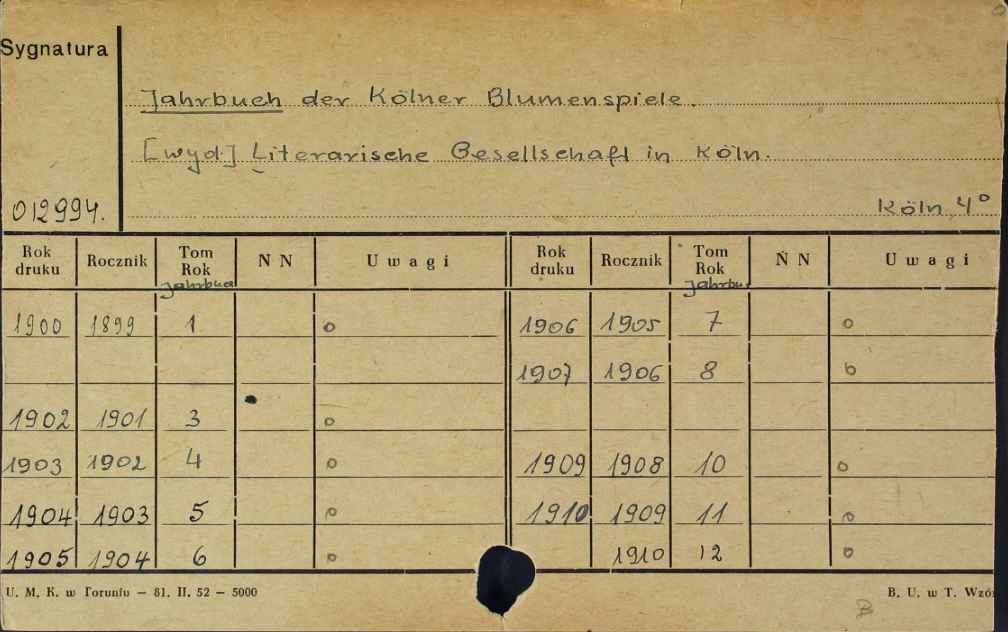 Sygnatura
Jahrbuch der Kölner Blumenspiele.
[wyd] Literarische Gesellschaft in Köln.
012994.
Köln 4°
Rok druku Rocznik Tom Rok Jahrbuch N N Uwagi Rok druku Rocznik Tom Rok Jahrbu N N Uwagi
1900 1899 1 o 1906 1905 7 o
1907 1906 8 o
1902 1901 3 o
1903 1902 4 o 1909 1908 10 o
1904 1903 5 o 1910 1909 11 o
1905 1904 6 o 1910 12 o
U. M. K. w Toruniu — 81. II. 52 — 5000
B. U. w T. Wzór